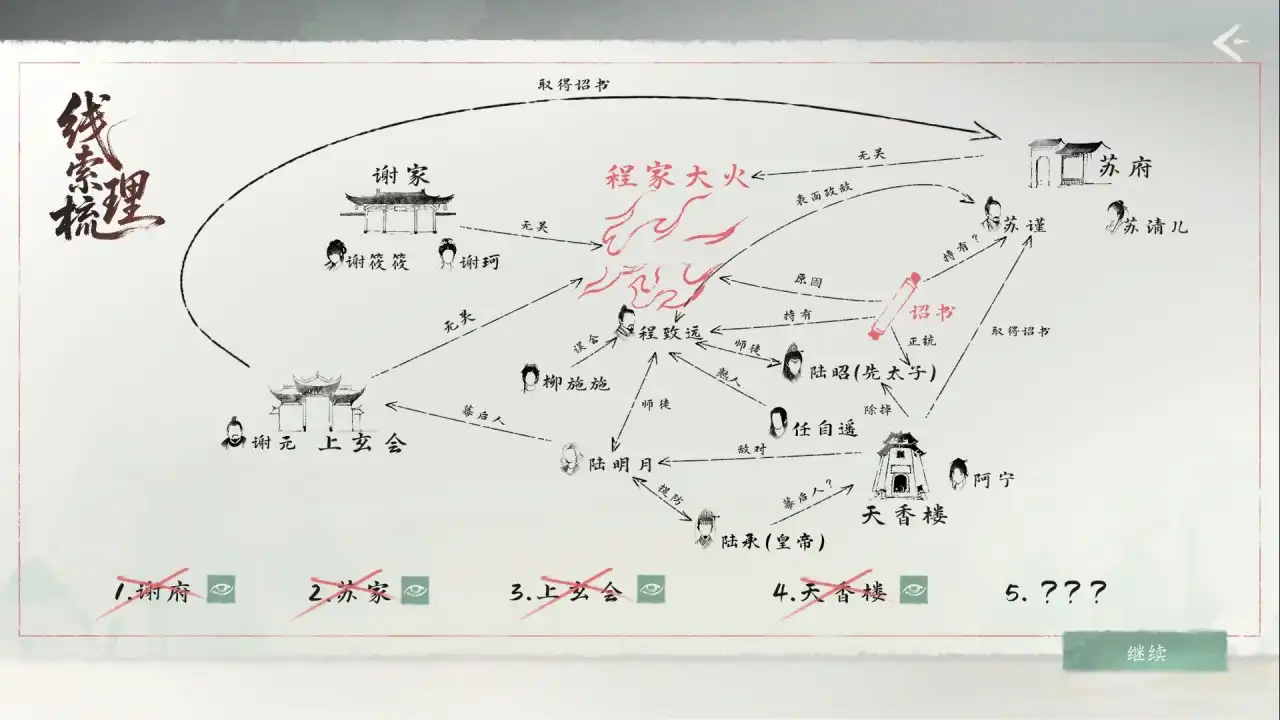 线索梳理
取得诏书
谢家
程家大火
无关
苏府
表面政敌
无关
苏谨
苏清儿
谢筱筱
谢珂
持有？
原因
诏书
无关
持有
取得诏书
程致远
误会
师徒
正统
柳施施
陆昭(先太子)
熟人
师徒
除掉
幕后人
任自遥
谢元
上玄会
敌对
陆明月
阿宁
提防
幕后人？
天香楼
陆承(皇帝)
1.谢府
2.苏家
3.上玄会
4.天香楼
5.？？？
继续